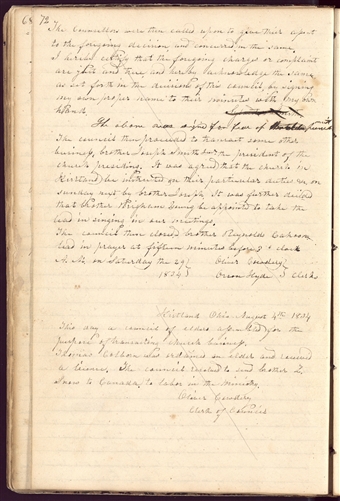 68 72
The Councellors were then called upon to give their assent
to the foregoing decision and concurred in the same.
I hereby certify that the foregoing charges or complaint
are just and true and hereby acknowledge the same
as set forth in the decision of this council, by signing
my own proper name to their minutes with my own
hand.
The above was signed for fear of
The council then proceeded to transact some other
business, brother Joseph Smith the president of the
church presiding. It was agreed that the church in
Kirtland be instructed in their particular duties on
sunday next by brother Joseph. It was further decided
that brother Brigham Young be appointed to take the
lead in singing in our meetings.
The council then closed brother Reynolds Cahoon
lead in prayer at fifteen minutes before 3 o clock
A. M. on Saturday the 29
Oliver Cowdery
1834
Orson Hyde Clerks
Kirtland Ohio August 4th 1834
This day a council of elders assembled for the
purpose of transacting church business.
Thomas was ordained an elder and received
a licence. The council resolved to send brother Z.
Snow to Canada, to labor in the ministry.
Oliver Cowdery
Clerk of Council